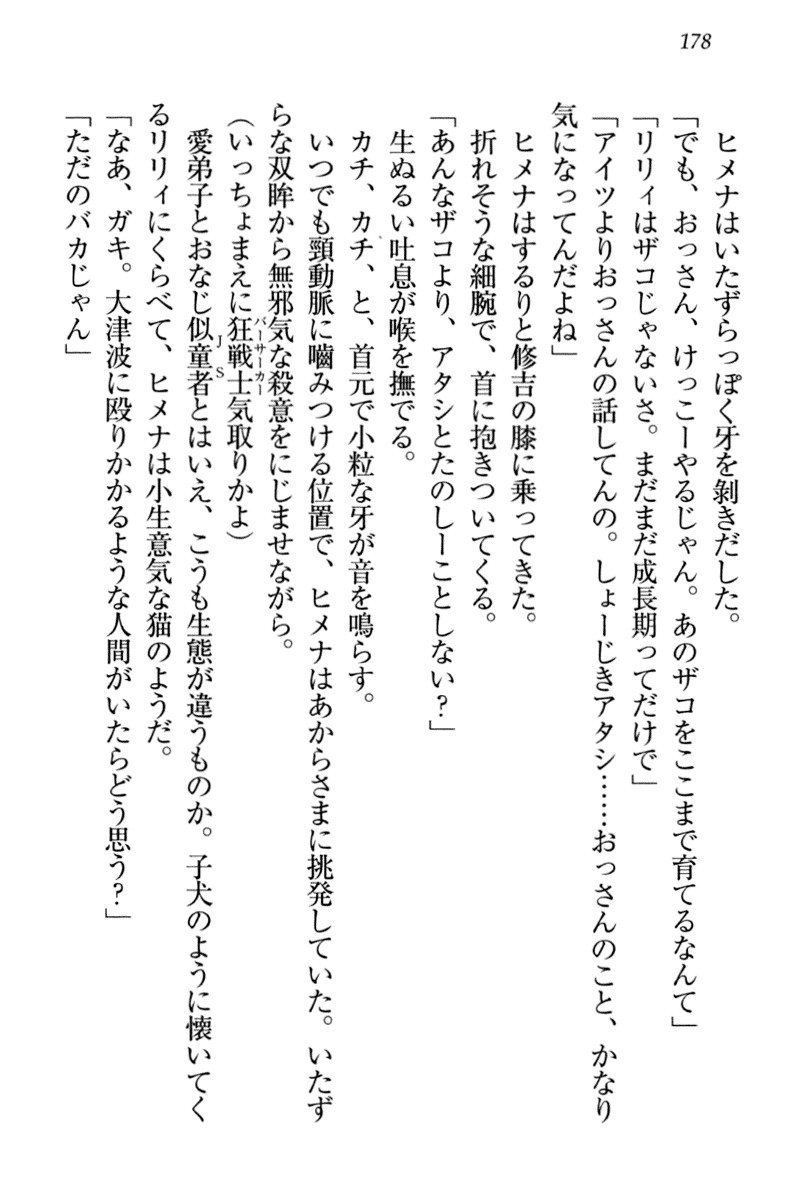 178
ヒメナはいたずらっぽく牙を剝きだした。
「でも、おっさん、けっこーやるじゃん。あのザコをここまで育てるなんて」
「リリィはザコじゃないさ。まだまだ成長期ってだけで」
「アイツよりおっさんの話してんの。しょーじきアタシ……おっさんのこと、かなり
気になってんだよね」
ヒメナはするりと修吉の膝に乗ってきた。
折れそうな細腕で、首に抱きついてくる。
「あんなザコより、アタシとたのしーことしない?」
生ぬるい吐息が喉を撫でる。
カチ、カチ、と、首元で小粒な牙が音を鳴らす。
いつでも頸動脈に嚙みつける位置で、ヒメナはあからさまに挑発していた。いたず
らな双眸から無邪気な殺意をにじませながら。
(いっちょまえに狂戦士バーサーカー気取りかよ)
愛弟子とおなじ似童者JSとはいえ、こうも生態が違うものか。子犬のように懐いてく
るリリィにくらべて、ヒメナは小生意気な猫のようだ。
「なあ、ガキ。大津波に殴りかかるような人間がいたらどう思う?」
「ただのバカじゃん」